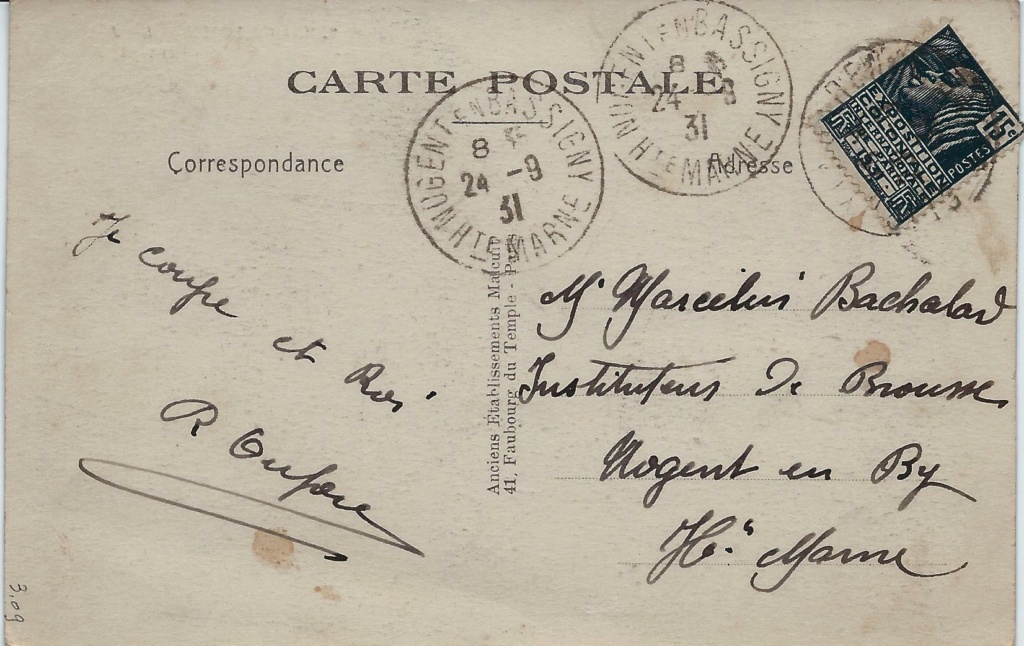 CARTE POSTALE
Correspondance
Adresse
NOGENT EN BASSIGNY
8
24 -9
31
HTE MARNE
NOGENT EN BASSIGNY
8
24 -9
31
HTE MARNE
EXPOSITION
COLONIALE
INTERNATIONALE
PARIS
1931
POSTES
15c
Je coupe
et
R
Anciens Etablissements Malcuit
41, Faubourg du Temple - Paris
Mr Marcelin Bachalard
Instituteur De Brousse
Nogent en By
Hte Marne
3,09